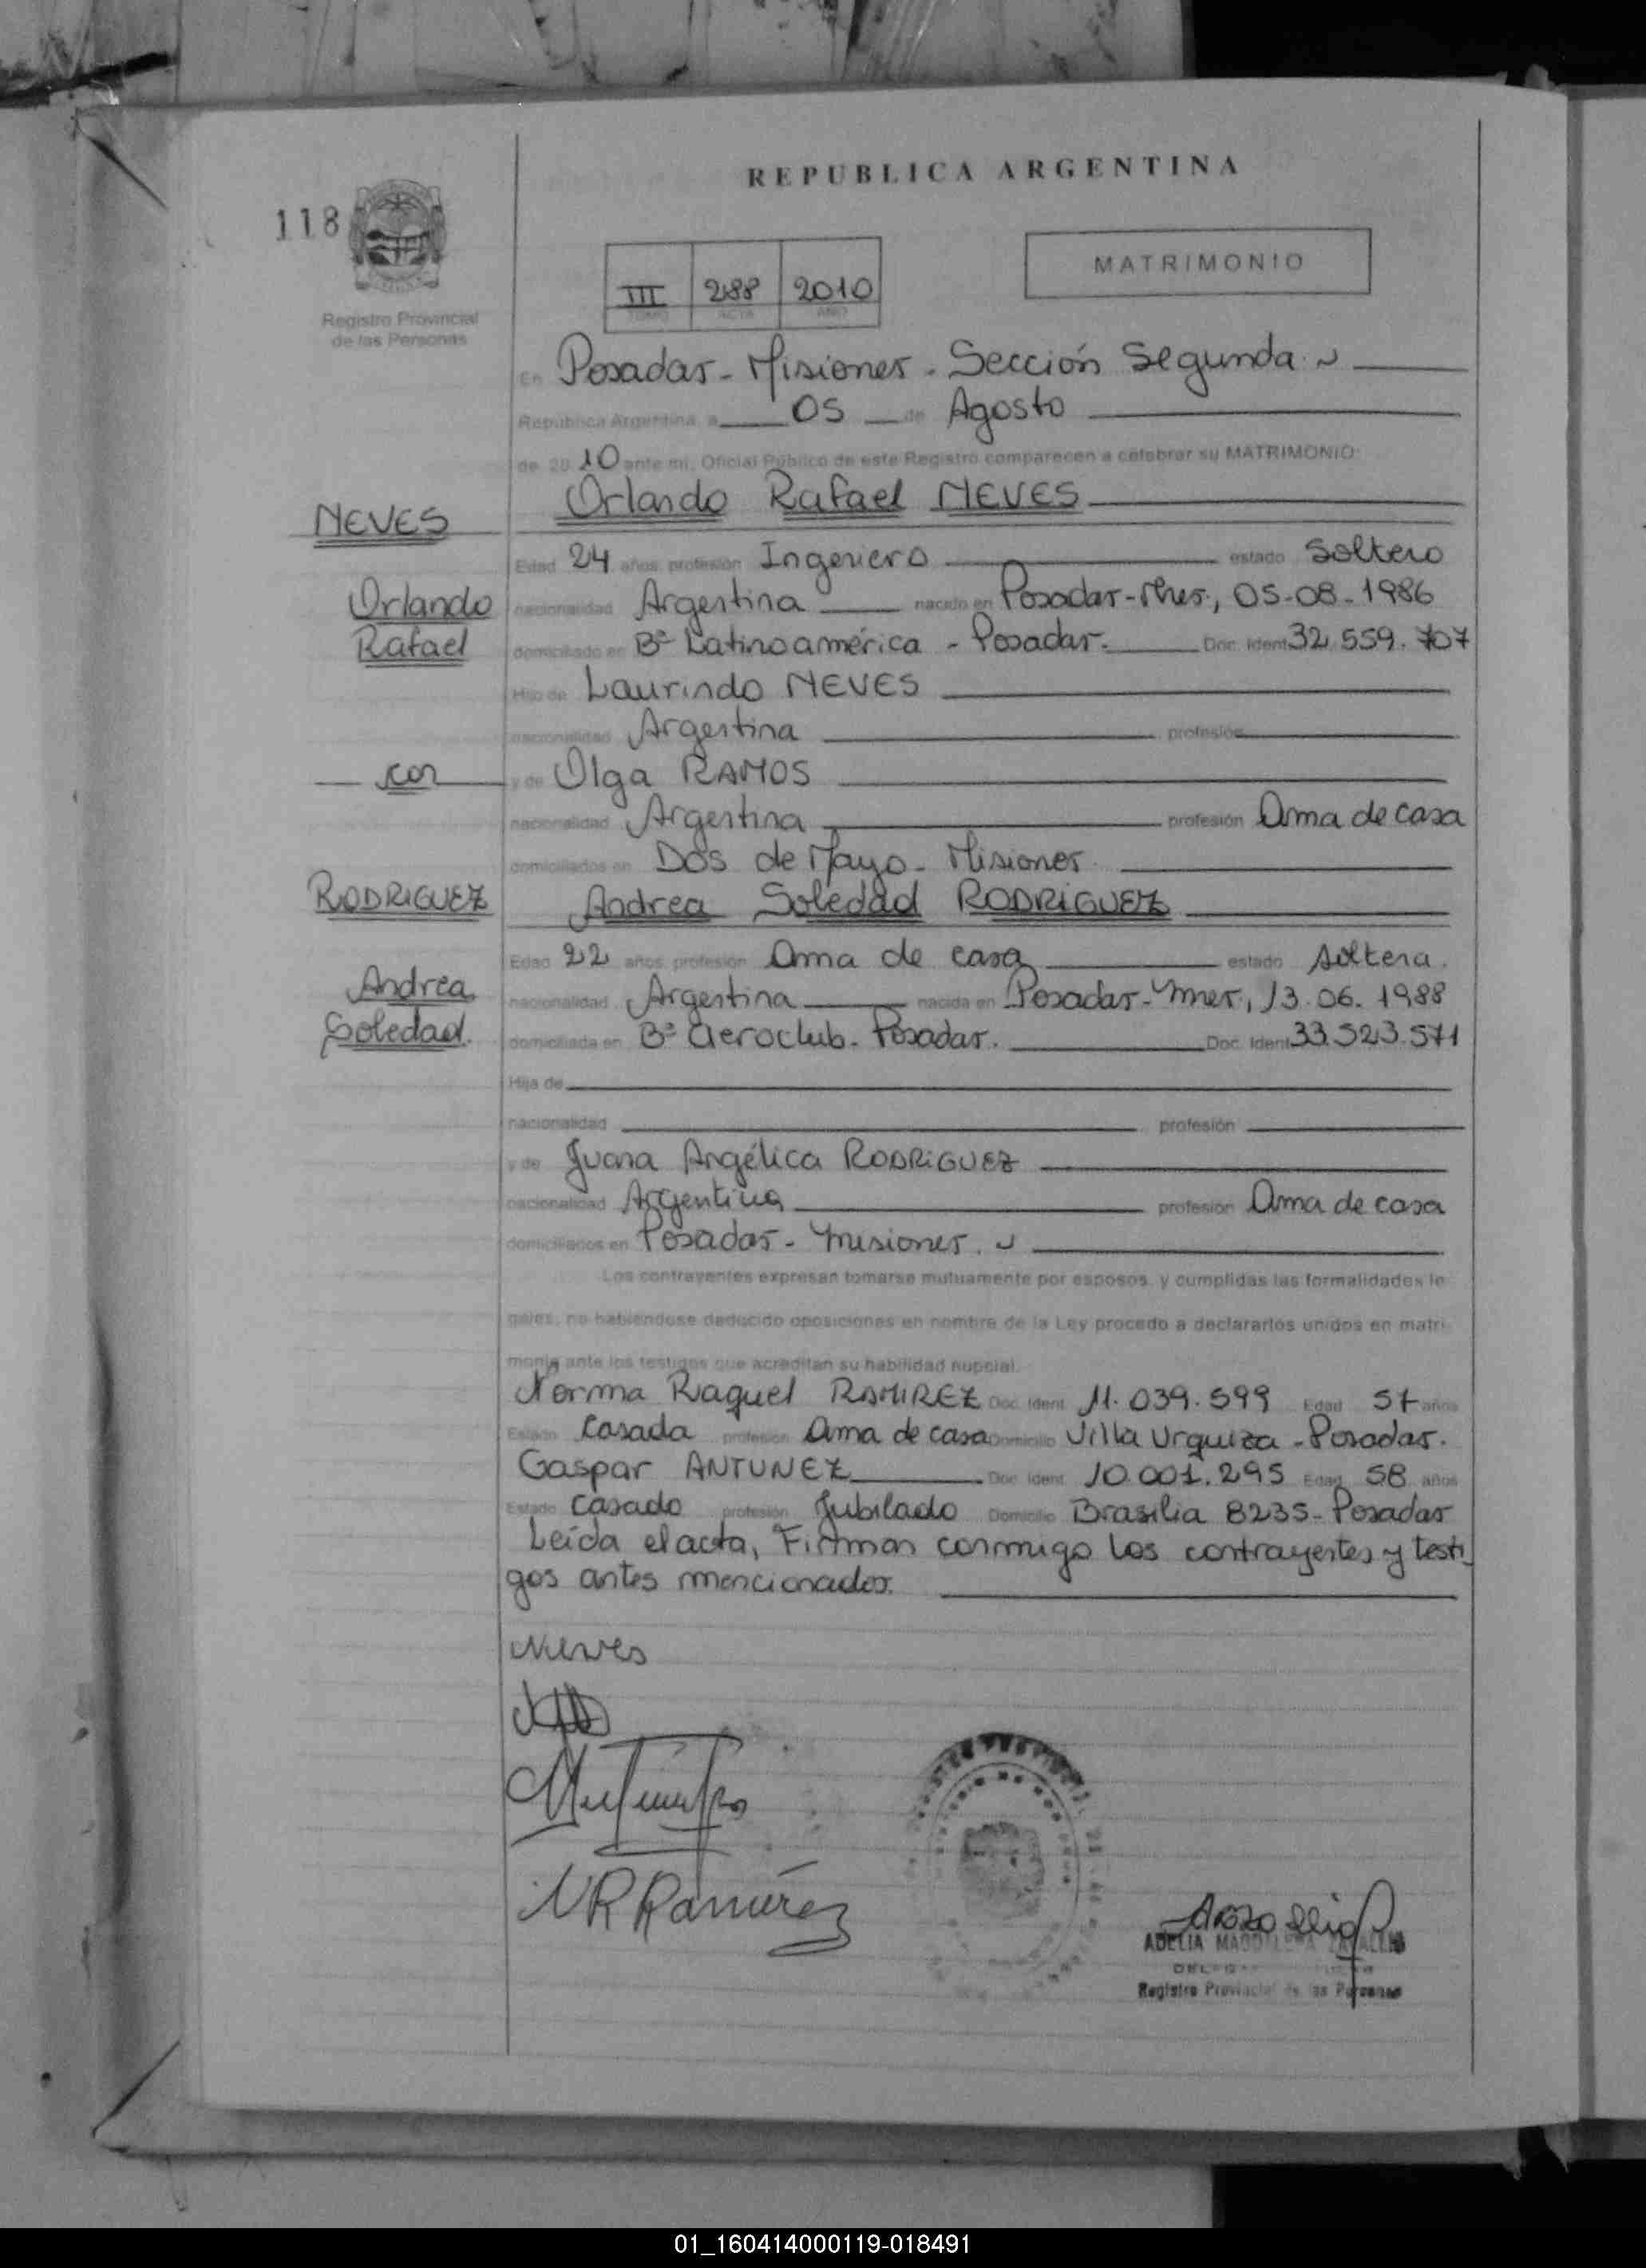 REPUBLICA ARGENTINA
118
MATRIMONIO
III 288 2010
TOMO ACTA AÑO
Registro Provincial
de las Personas
En Posadas - Misiones - Sección Segunda
República Argentina a 05 de Agosto
de 20 10 ante mi, Oficial Público de este Registro comparecen a celebrar su MATRIMONIO:
Orlando Rafael NEVES
NEVES
Edad 24 años profesión Ingeniero estado Soltero
Orlando
nacionalidad Argentina nacido en Posadas-Mnes, 05-08-1986
Rafael
domiciliado en Bº Latinoamérica - Posadas. Doc. Ident 32.559.707
Hijo de Laurindo NEVES
nacionalidad Argentina profesión
con
y de Olga RAMOS
nacionalidad Argentina profesión Ama de casa
domiciliados en Dos de Mayo - Misiones
RODRIGUEZ
Andrea Soledad RODRIGUEZ
Edad 22 años profesión Ama de casa estado soltera.
Andrea
nacionalidad Argentina nacida en Posadas-Mnes, 13.06.1988
Soledad.
domiciliada en Bº Aeroclub - Posadas. Doc. Ident 33.523.571
Hija de
nacionalidad profesión
y de Juana Angélica RODRIGUEZ
nacionalidad Argentina profesión Ama de casa
domiciliados en Posadas - Misiones.
Los contrayentes expresan tomarse mutuamente por esposos, y cumplidas las formalidades le
gales, no habiéndose deducido oposiciones en nombre de la Ley procedo a declararlos unidos en matri
monio ante los testigos que acreditan su habilidad nupcial.
Norma Raquel RAMIREZ Doc. Ident. 11.039.599 Edad 57 años
Estado Casada profesión Ama de casa Domicilio Villa Urquiza - Posadas.
Gaspar ANTUNEZ Doc. Ident. 10.001.295 Edad 58 años
Estado Casado profesión Jubilado Domicilio Brasilia 8235 - Posadas
Leída el acta, Firman conmigo los contrayentes y testi
gos antes mencionados.
Neves
NRRamírez
ADELIA
Registro Provincial de las Personas
01_160414000119-018491